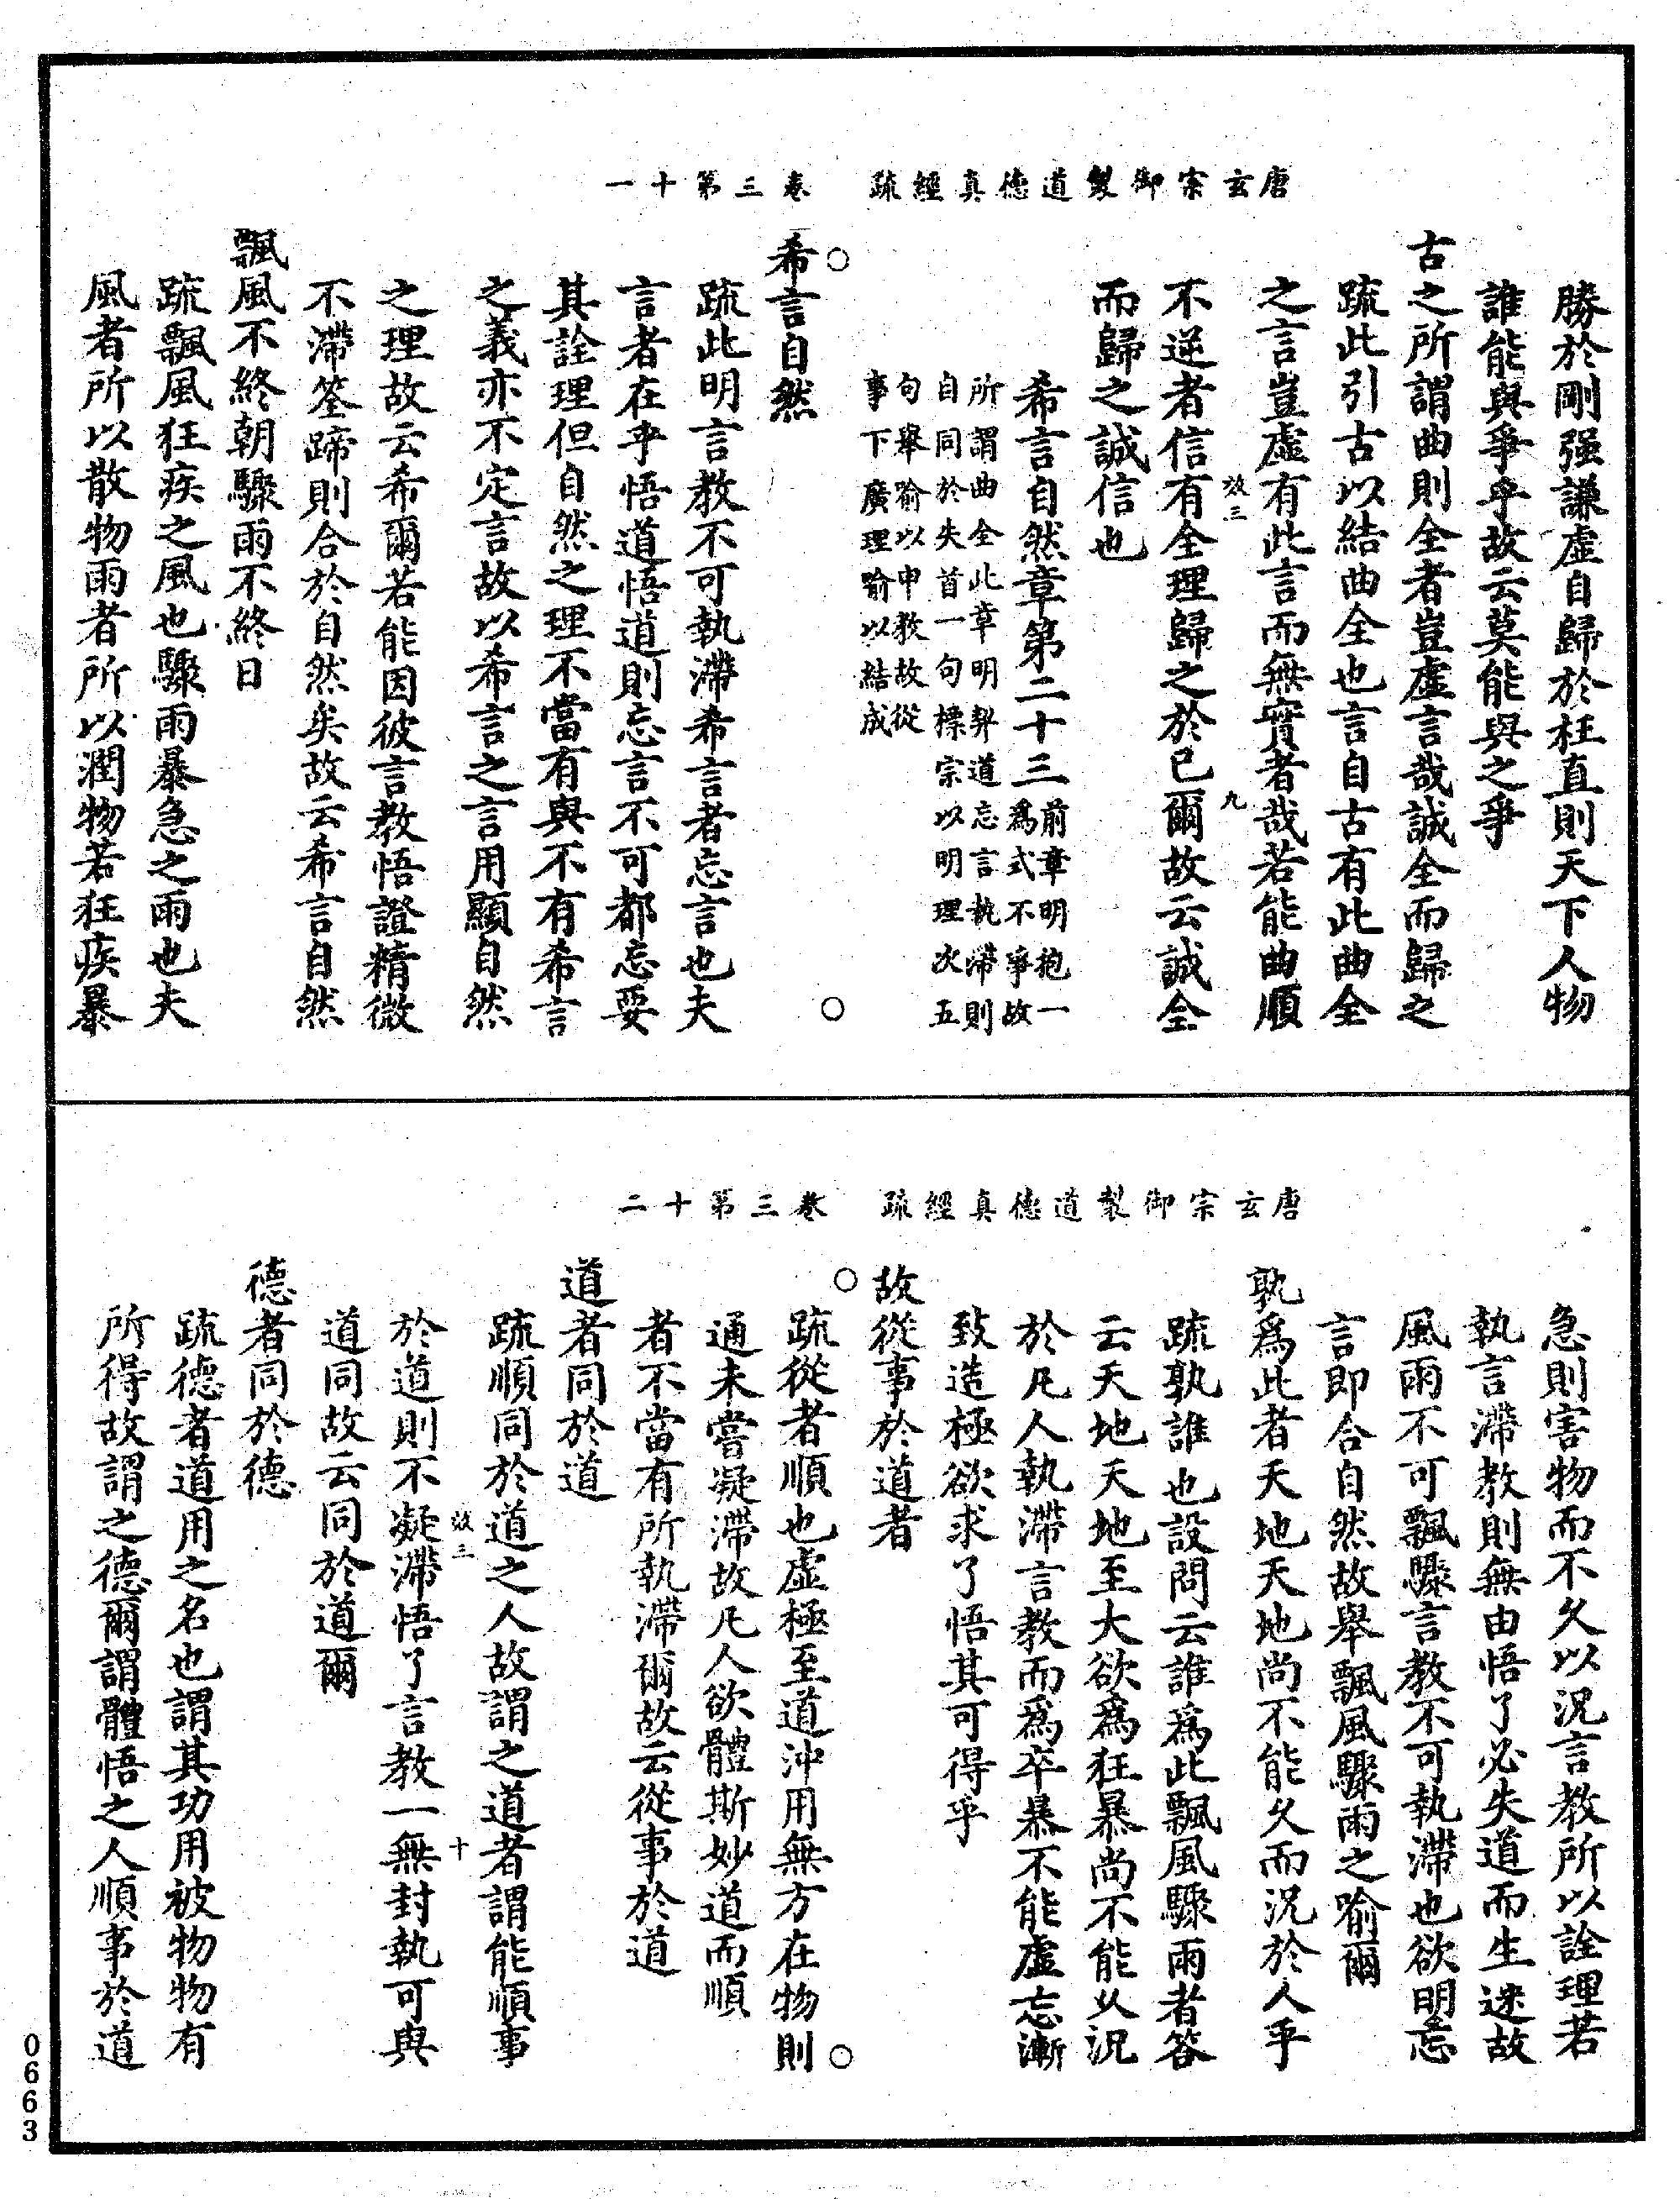 唐玄宗御製道德真經疏　卷三第十一
勝於剛强謙虛自歸於枉直則天下人物
誰能與爭乎故云莫能與之爭
古之所謂曲則全者豈虛言哉誠全而歸之
疏此引古以結曲全也言自古有此曲全
之言豈虛有此言而無實者哉若能曲順
效三　九
不逆者信有全理歸之於已爾故云誠全
而歸之誠信也
希言自然章第二十三前章明抱一
爲式不爭故
所謂曲全此章明契道忘言執滯則
自同於失首一句標宗以明理次五
句舉喻以申教故從
事下廣理喻以結成
希言自然
疏此明言教不可執滯希言者忘言也夫
言者在乎悟道悟道則忘言不可都忘要
其詮理但自然之理不當有與不有希言
之義亦不定言故以希言之言用顯自然
之理故云希爾若能因彼言教悟證精微
不滯筌蹄則合於自然矣故云希言自然
飄風不終朝驟雨不終日
疏飄風狂疾之風也驟雨暴急之雨也夫
風者所以散物雨者所以潤物若狂疾暴
唐玄宗御製道德真經疏　卷三第十二
急則害物而不久以況言教所以詮理若
執言滯教則無由悟了必失道而生迷故
風雨不可飄驟言教不可執滯也欲明忘
言即合自然故舉飄風驟雨之喻爾
孰爲此者天地天地尚不能久而況於人乎
疏孰誰也設問云誰爲此飄風驟雨者答
云天地天地至大欲爲狂暴尚不能久況
於凡人執滯言教而爲卒暴不能虛忘漸
致造極欲求了悟其可得乎
故從事於道者
疏從者順也虛極至道沖用無方在物則
通未嘗凝滯故凡人欲體斯妙道而順
者不當有所執滯爾故云從事於道
道者同於道
疏順同於道之人故謂之道者謂能順事
效三　十
於道則不凝滯悟了言教一無封執可與
道同故云同於道爾
德者同於德
疏德者道用之名也謂其功用被物物有
所得故謂之德爾謂體悟之人順事於道
0663